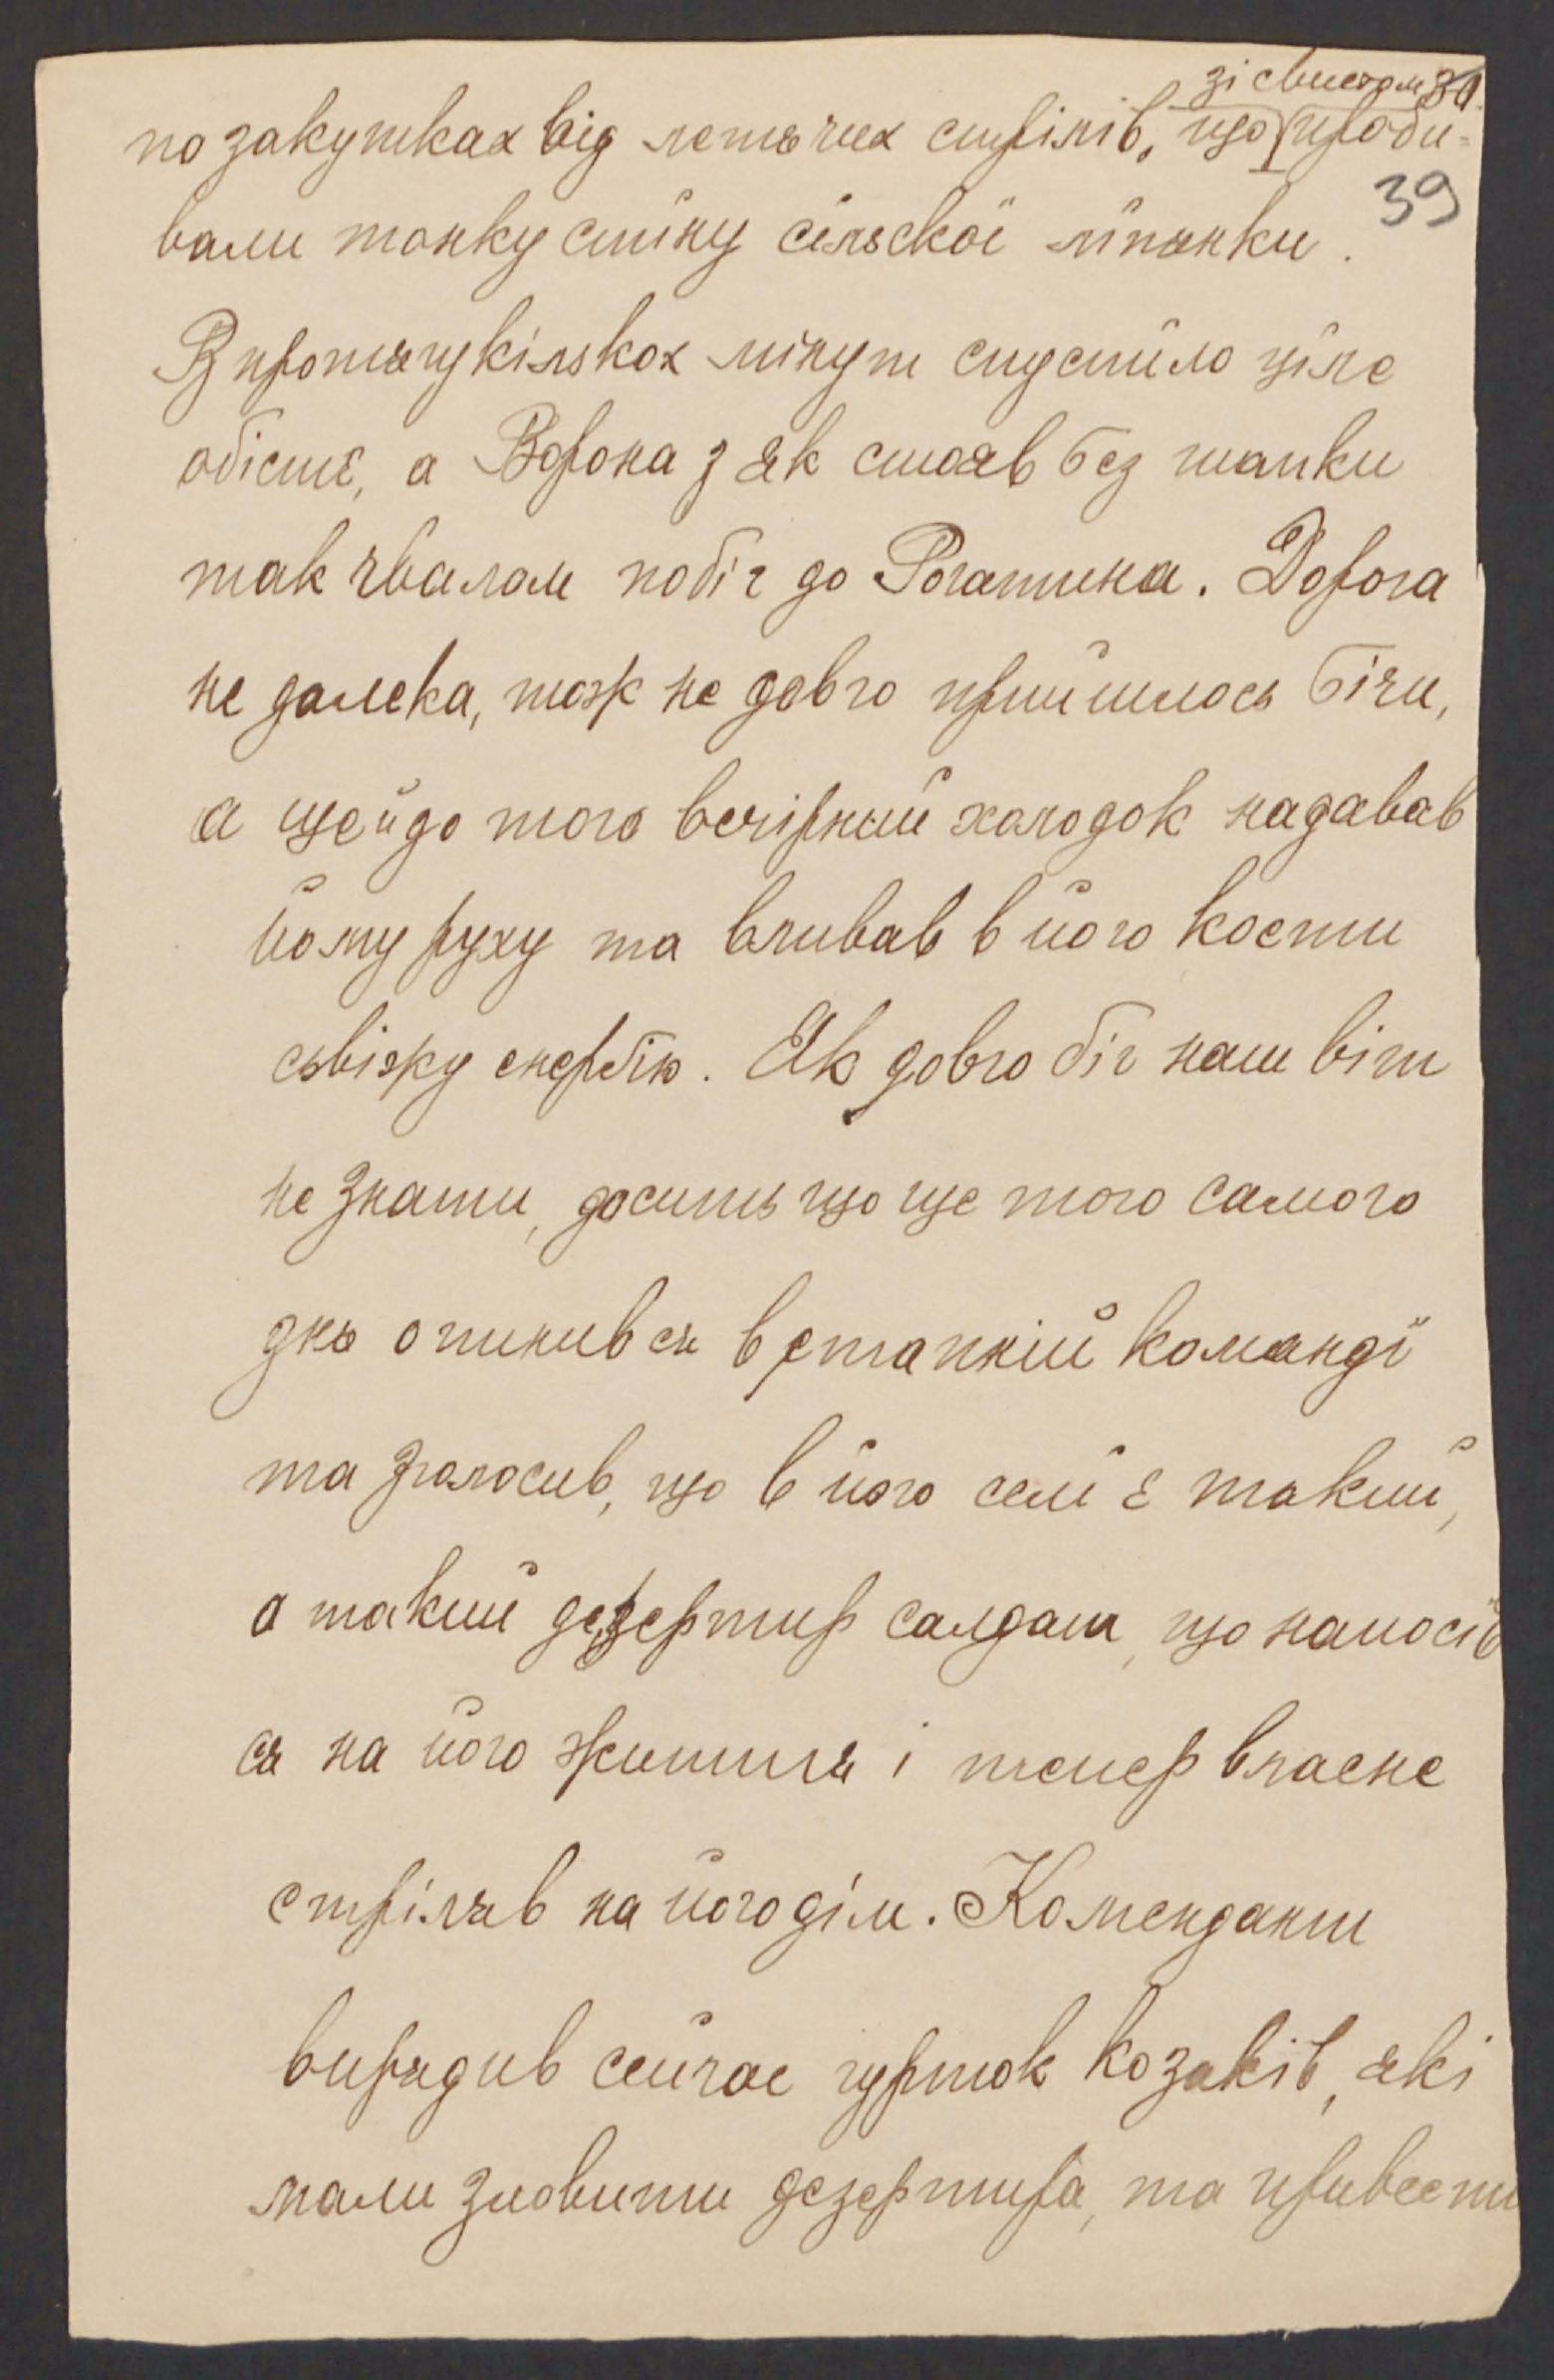 зі свистом 30.
по закутках від летячих стрілів, що проби-
39
вали тонку стїну сїльскої лїпянки.
В протягу кількох мінут спустїло ціле
обістє, а Ворона з як стояв без шапки
так чвалом побіг до Рогатина. Дорога
не далека, тож не довго прийшлось бічи,
а ще й до того вечірний холодок надавав
йому руху та вливав в його кости
сьвіжу енерґію. Як довго біг наш віт
не знати, досить що ще того самого
дня опинив ся в етапній командї
та зголосив, що в його селї є такий,
а такий дезертир салдат, що наносів
ся на його житя і тепер власне
стріляв на його дім. Комендант
вирядив сейчас гурток козаків, які
мали зловити дезертира, та привести